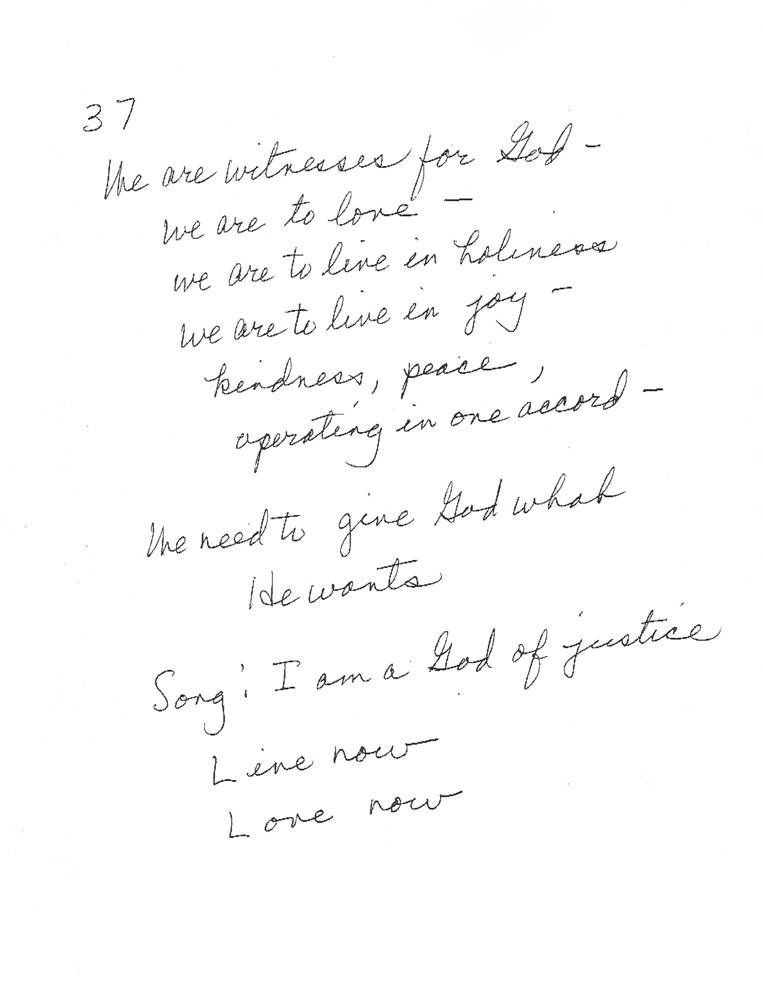 37
We are witnesses for God -
we are to love -
we are to live in holiness
we are to live in joy -
kindness, peace,
operating in one accord -
We need to give God what
He wants
Song: I am a God of justice
Live now
Love now